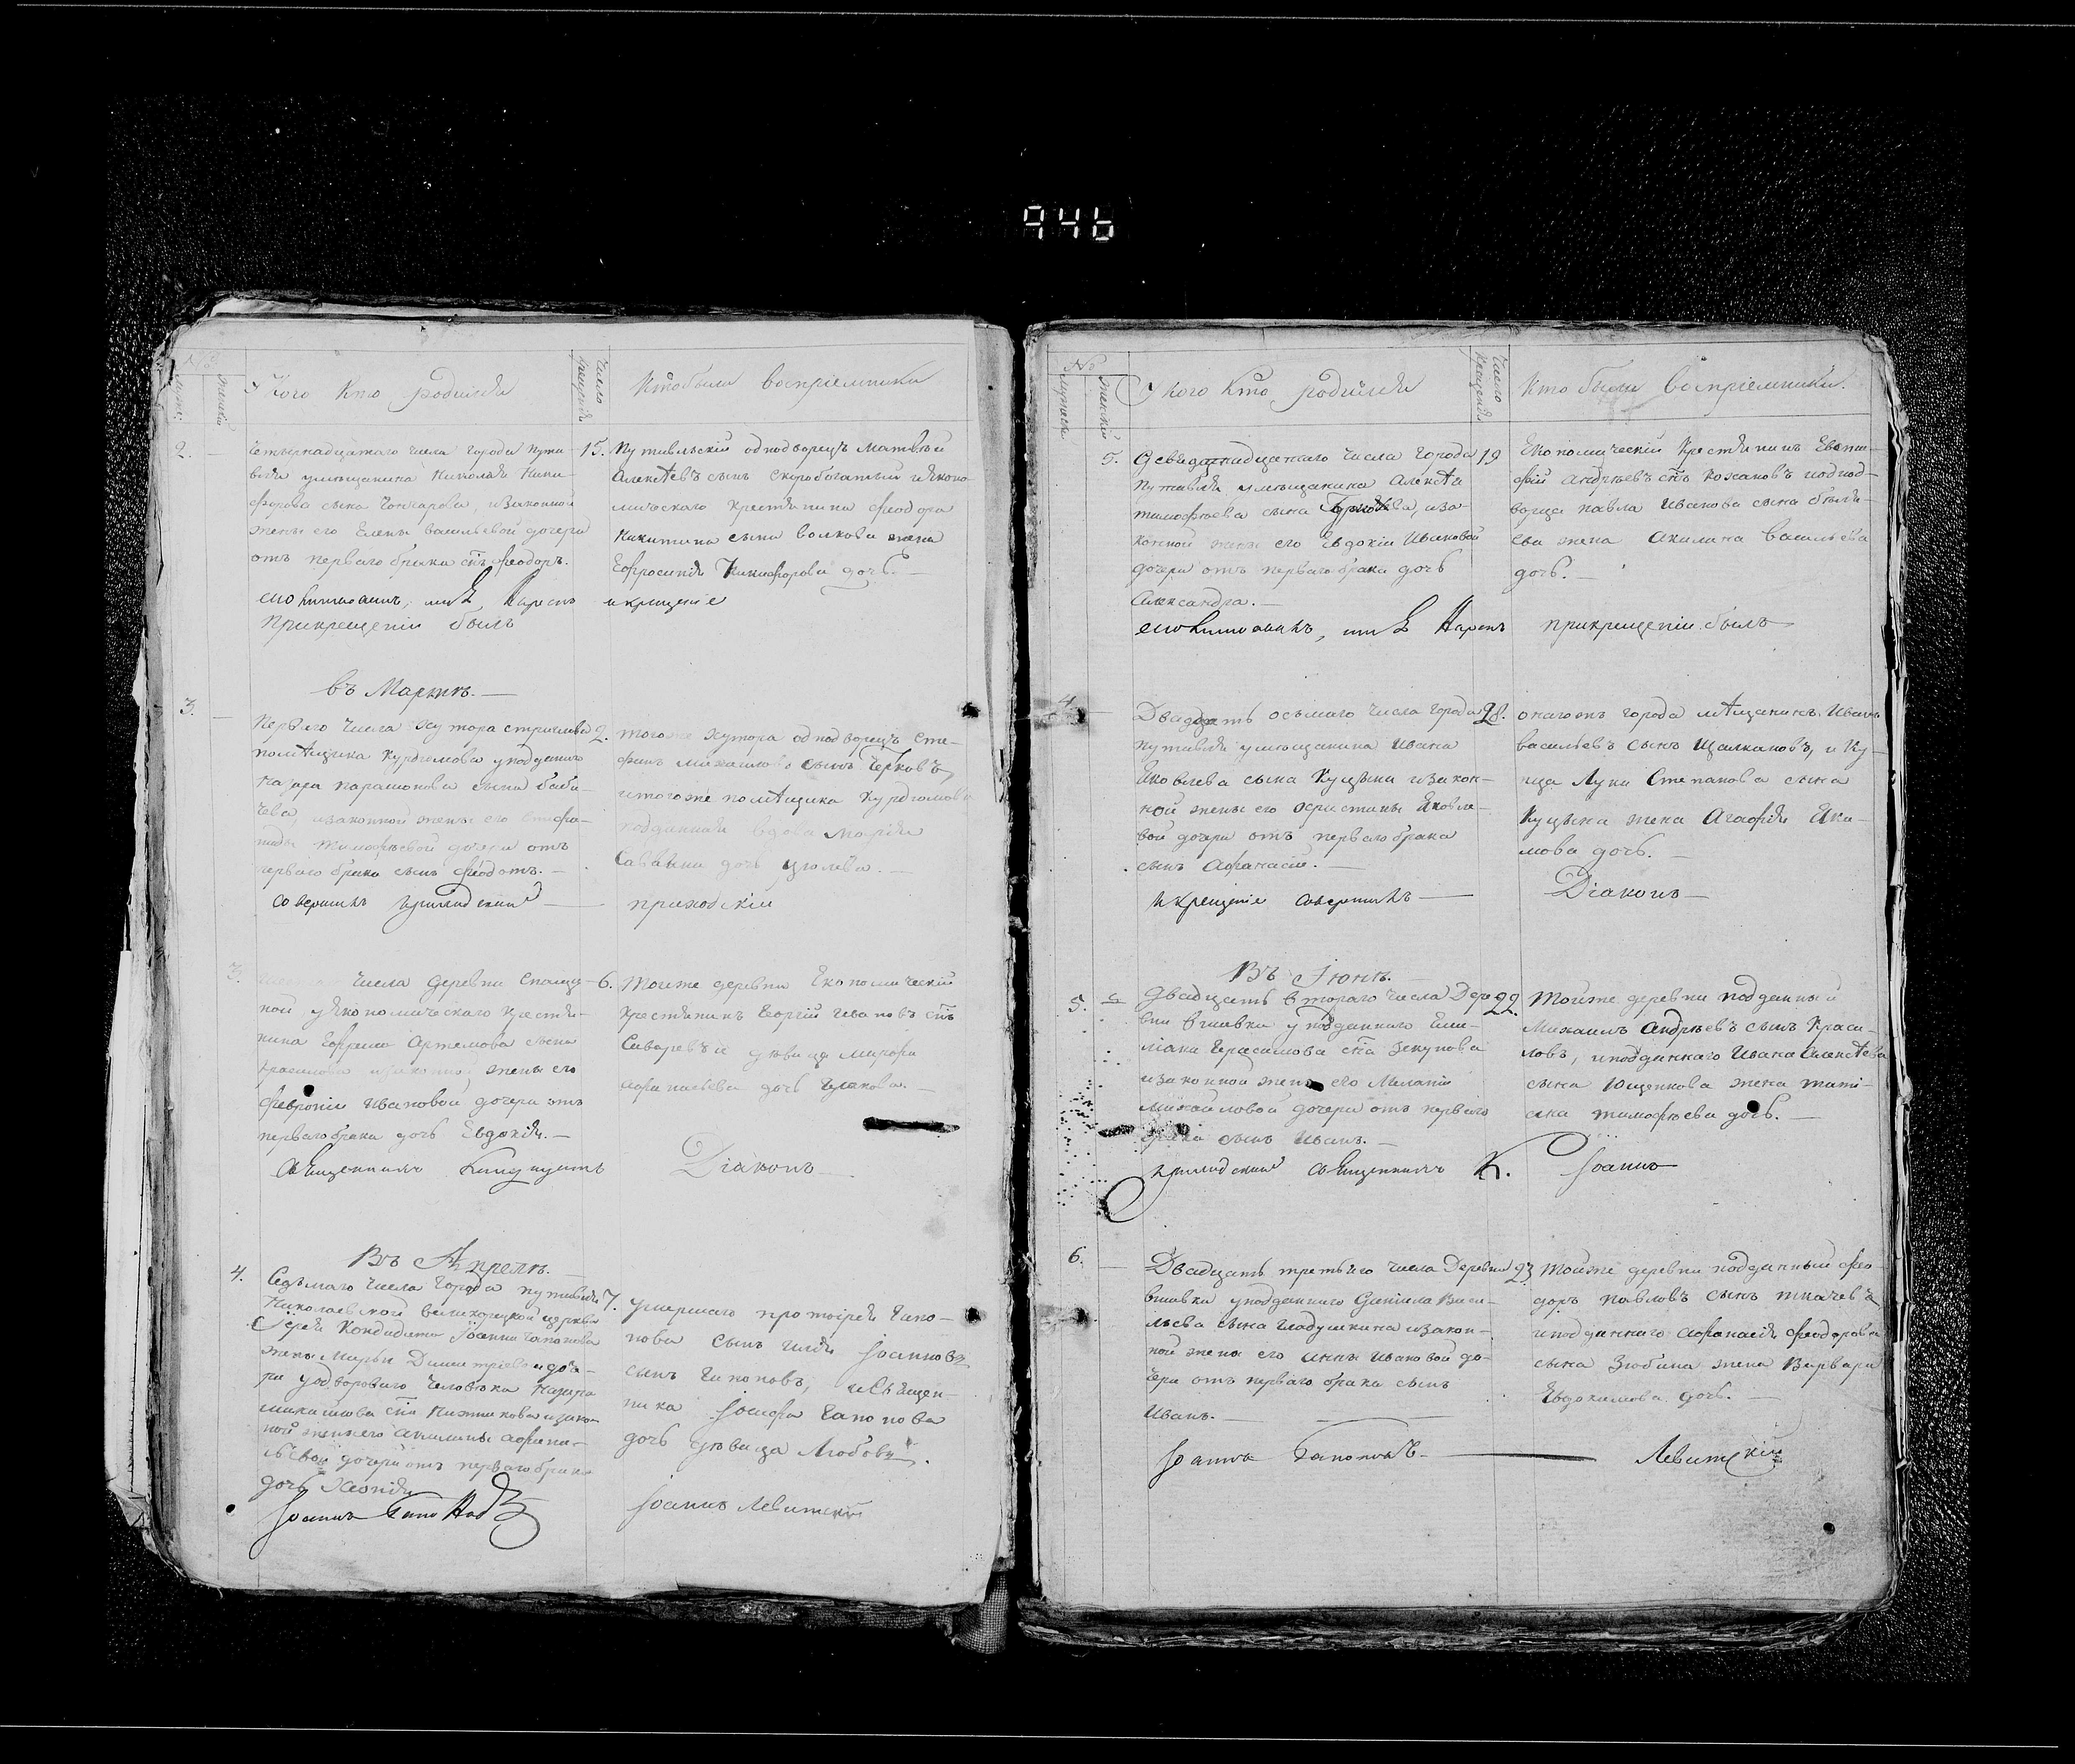 946
№
мужес:
женск:
У кого кто родился
Число крещения
Кто были восприемники
2.
Четырнадцатаго числа города Пути-
вля у мещанина Николая Ники-
форова сына Гончарова, и законной
жены его Елены Васильевой дочери
отъ перваго брака снъ Феодоръ.
15.
Путивльскій однодворецъ Матвѣй
Алексѣевъ сынъ Скоробогатый и Эконо
мическаго крестьянина Феодора
Никитина сына Волкова жена
Ефросинія Никифорова дочь.
и крещеніе
При крещеніи былъ
въ Мартѣ.
3.
Перваго числа хутора
помѣщика у подданаго
Назара Парамонова сына Баби-
чева и законной жены его Епифа-
ніды Тимофѣевой дочери отъ
перваго брака сынъ Феодотъ.
2.
того же хутора однодворецъ Сте-
фанъ Михайловъ сынъ
и того же помѣщика
подданная вдова Марія
Саввина дочь
Совершилъ приходскій
приходскій
3.
числа деревни
ной у Экономическаго крестья-
нина Ефрема Артемова сына
Красилова и законной жены его
Февроніи Ивановой дочери отъ
перваго брака дочь Евдокія.
6.
Тойже деревни Економическій
крестьянинъ Георгій Ивановъ снъ
и дѣвица Марфа
Афанасьева дочь
Священникъ Кандидатъ
Діаконъ
Въ Апрелѣ.
4.
Седьмаго числа города Путивля
Николаевской великорецкой церкви
Іерея Кандидата Іоанна Гапонова
жены Марьи Димитріевой доче-
ри у двороваго человека Назара
Михайлова сна и закон
ной жены его Акилины Афана-
сьевой дочери отъ перваго брака
дочь
7.
Умершаго протоіерея Гапо-
нова сынъ Илія Іоанновъ
сынъ Гапоновъ, и Священ-
ника Іосифа Гапонова
дочь дѣвица Любовь.
Іоаннъ Гапоновъ
Іоаннъ Левитскій
№
мужеск
женскій
У кого кто родился
Число крещенія
Кто были восприемники.
5.
Девятнадцатаго числа города
Путивля у мещанина Алексѣя
Тимофѣева сына и за-
конной жены его Евдокіи Ивановой
дочери отъ перваго брака дочь
Александра.
19
Економическій крестьянинъ Евѳи-
фій Андрѣевъ снъ Кожановъ и однод-
ворца Павла Иванова сына Бѣля-
ева жена Акилина Васильева
дочь.
при крещеніи былъ
4.
Двадцать осьмаго числа города
Путивля у мещанина Ивана
Яковлева сына Куцына и закон-
ной жены его Христины Яковле-
вой дочери отъ перваго брака
сынъ Афанасій.
28.
онагожъ города мѣщанинъ Иванъ
Васильевъ сынъ Щалкановъ, и Ку-
пца Луки Степанова сына
Куцына жена Агафія Яки-
мова дочь.
и крещеніе совершилъ
Діаконъ
Въ Іюнѣ.
5.
Двадцать втораго числа Дере
вни у подданнаго Еми-
ліана Герасимова сна Зекунова
и законной жены его Меланіи
Михайловой дочери отъ перваго
брака сынъ Иванъ.
22.
Тойже деревни подданный
Михаилъ Андрѣевъ сынъ Краси-
ловъ, и подданнаго Ивана Алексѣева
сына Ющенкова жена Тати-
ана Тимофѣева дочь.
приходскій Священникъ К.
Іоаннъ
6.
Двадцать третьяго числа Деревни
у подданнаго Даніила Васи-
льева сына Гладушкина и закон-
ной жены его Анны Ивановой до-
чери отъ перваго брака сынъ
Иванъ.
23
Тойже деревни подданный Фео-
доръ Павловъ сынъ Ткачевъ
и подданнаго Афанасія Феодорова
сына Зюбина жена Варвара
Евдокимова дочь.
Іоаннъ Гапоновъ
Левитскій